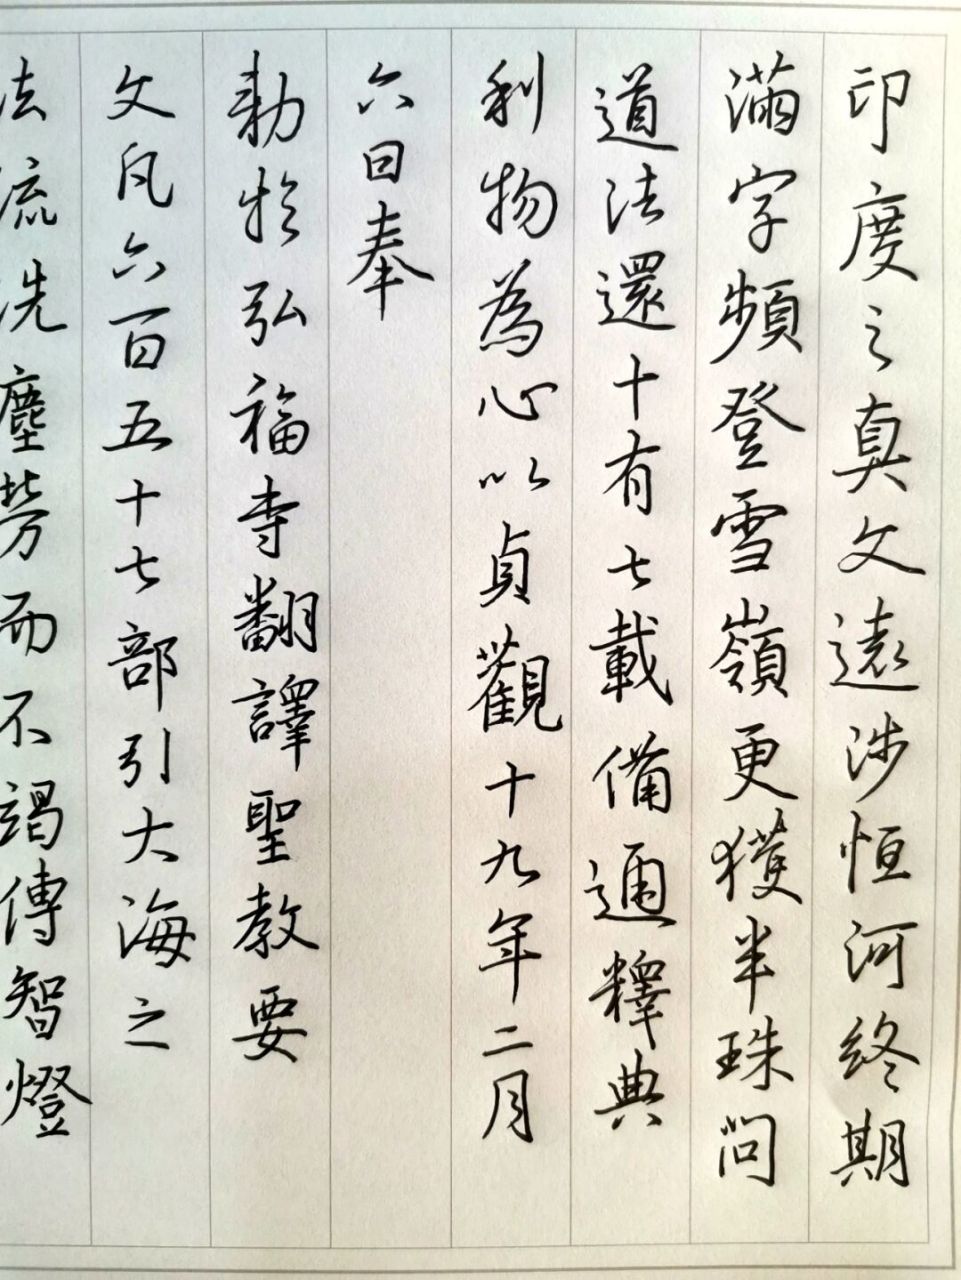 印度之真文遠涉恒河終期
滿字頻登雪嶺更獲半珠問
道法還十有七載備通釋典
利物為心以貞觀十九年二月
六日奉
勅於弘福寺翻譯聖教要
文凡六百五十七部引大海之
法流洗塵勞而不竭傳智燈